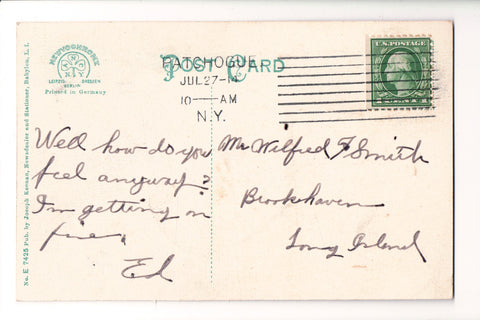 NEWVOCHROME
N.Y.
LEIPZIG DRESDEN
BERLIN
Printed in Germany
POST CARD
PATCHOGUE
JUL 27-14
10 — AM
N.Y.
U.S. POSTAGE
No. E 7425 Pub. by Joseph Keenan, Newsdealer and Stationer, Babylon, L. I.
Well how do you
feel anyway?
I'm getting on
fine.
Ed
Mr Wilfred F Smith
Brookhaven
Long Island